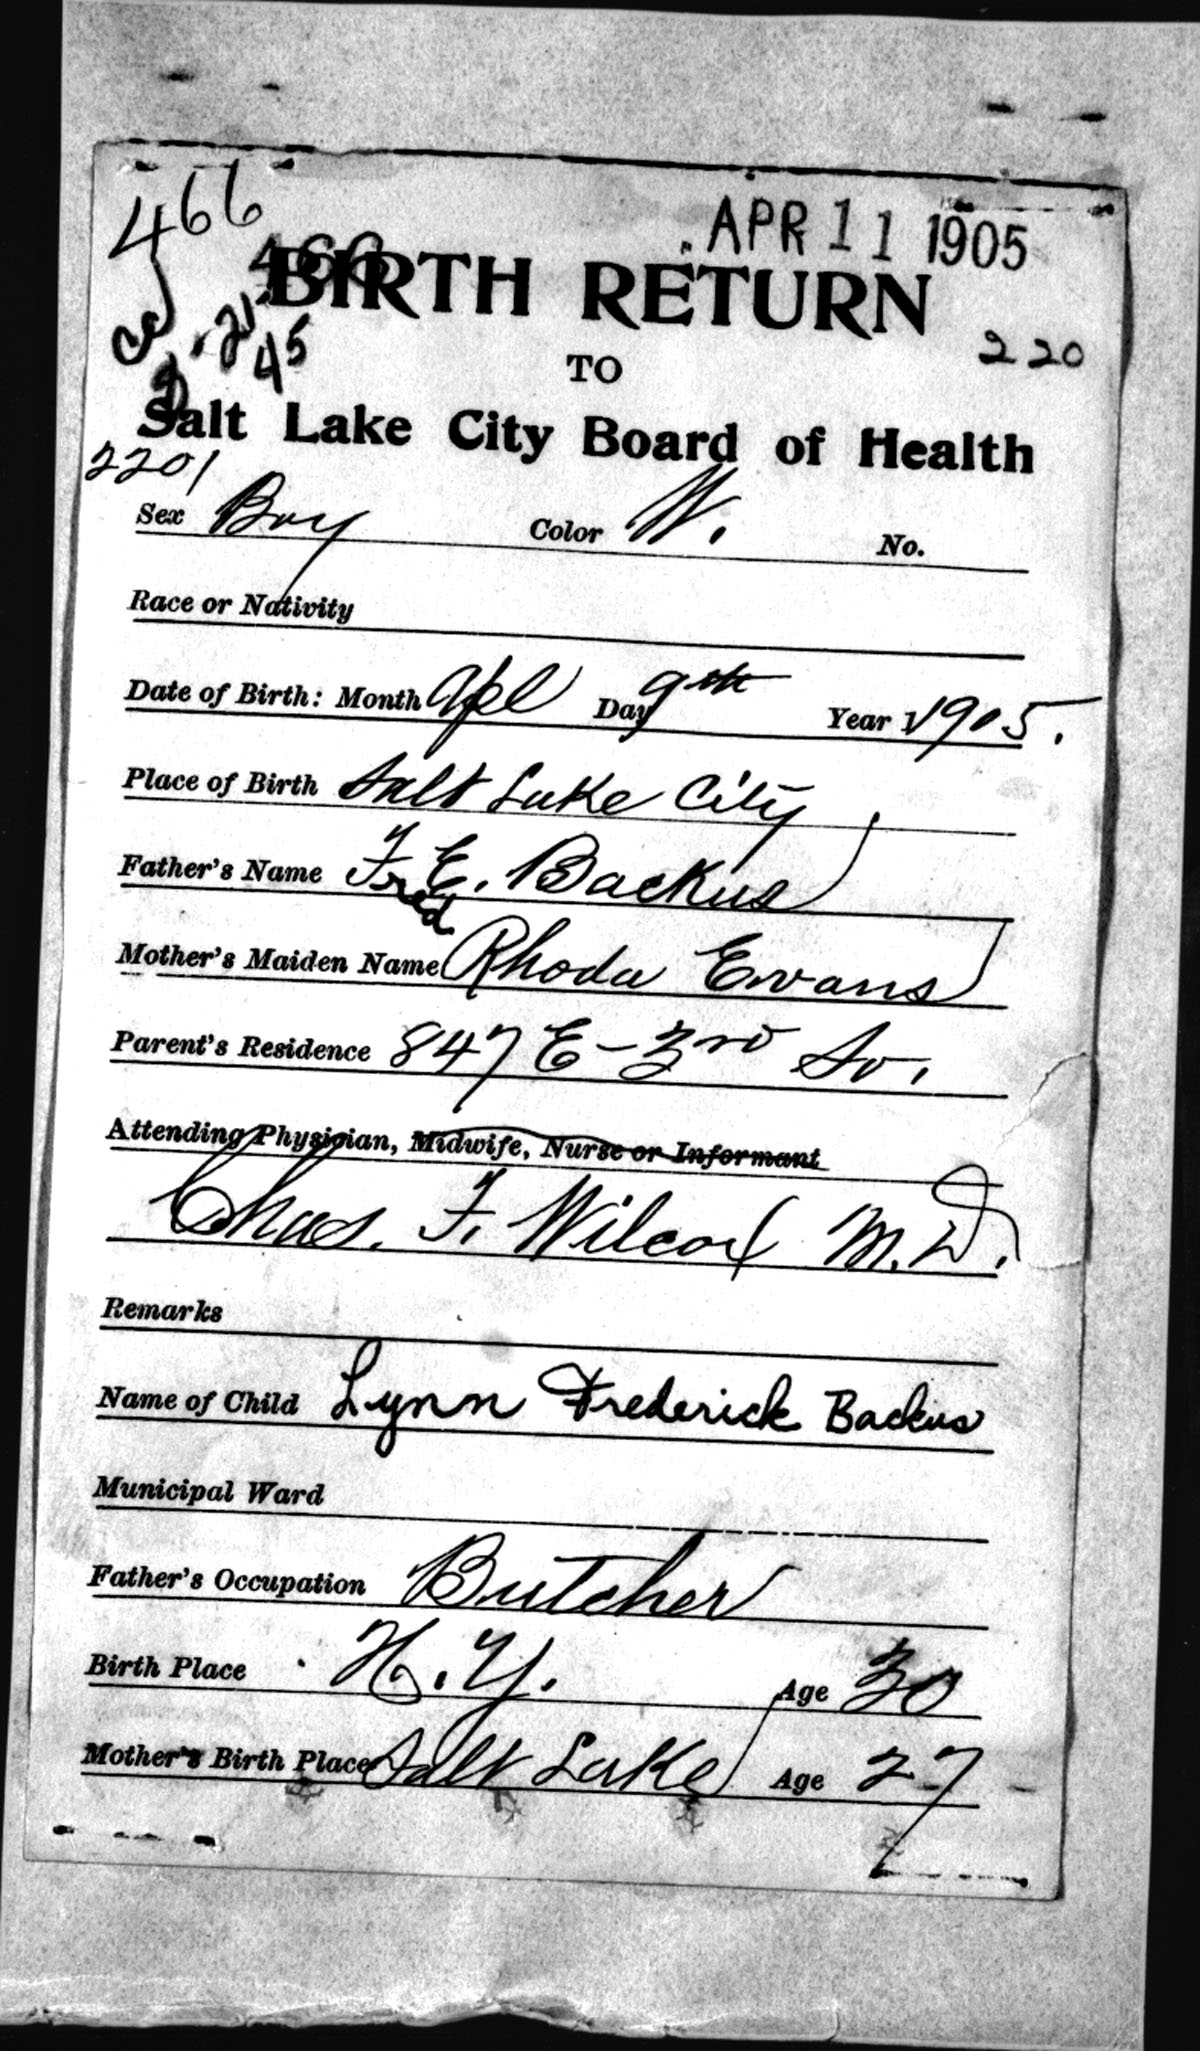 466
APR 11 1905
466
BIRTH RETURN
220
45
TO
Salt Lake City Board of Health
2201
Sex Boy Color W. No.
Race or Nativity
Date of Birth: Month Apl Day 9th Year 1905.
Place of Birth Salt Lake City
Father's Name F. E. Backus
Fred
Mother's Maiden Name Rhoda Evans
Parent's Residence 847 E - 3rd So.
Attending Physician, Midwife, Nurse or Informant
Chas. F. Wilcox M.D.
Remarks
Name of Child Lynn Frederick Backus
Municipal Ward
Father's Occupation Butcher
Birth Place N.Y. Age 30
Mother's Birth Place Salt Lake Age 27